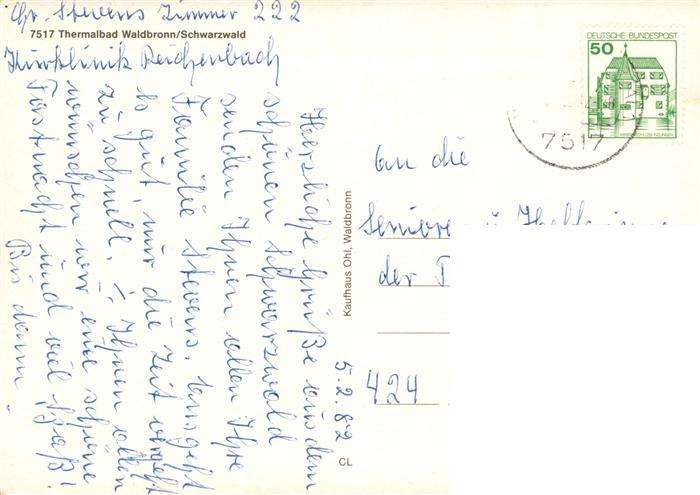 Gr. Stevens Zimmer 222
7517 Thermalbad Waldbronn/Schwarzwald
Kurklinik Reichenbach
Herzliche Grüße aus dem
schönen Schwarzwald
senden Ihnen allen Ihre
Familie Stevens. Uns geht
es gut nur die Zeit vergeht
zu schnell. Ihnen allen
wünschen wir eine schöne
Fastnacht und viel Spaß!
Bis dann
5.2.82
Kaufhaus Ohl, Waldbronn
CL
DEUTSCHE BUNDESPOST
50
7517
An die
Senioren
der
424